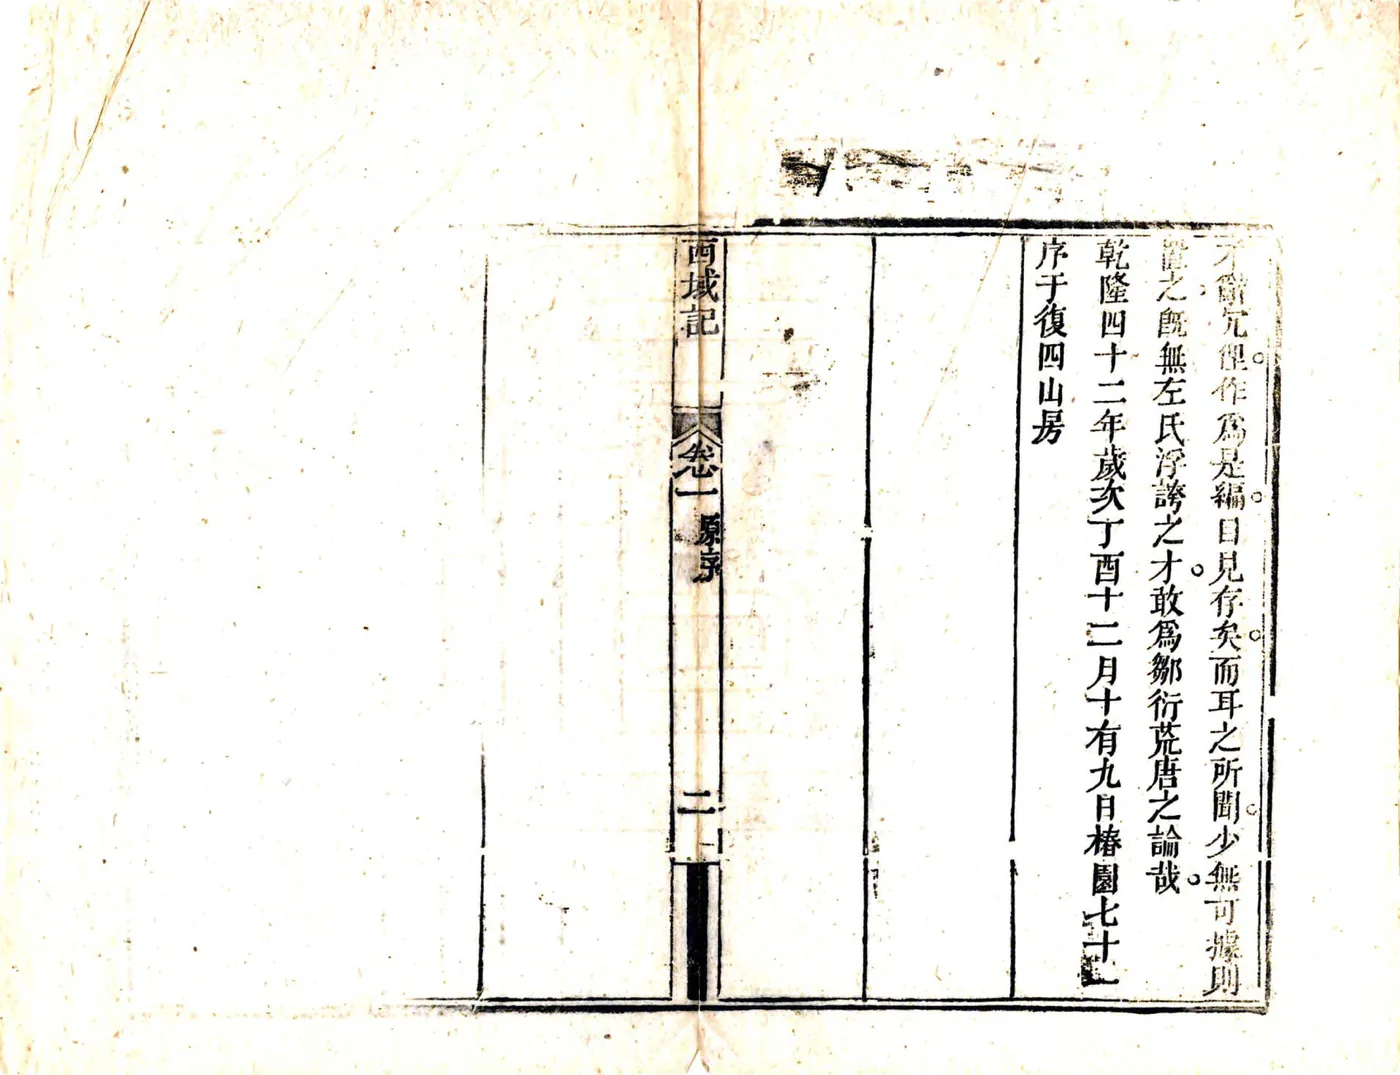 不辭冗俚作爲是編目見存矣而耳之所聞少無可據則
置之旣無左氏浮誇之才敢爲鄒衍荒唐之論哉
乾隆四十二年歲次丁酉十二月十有九日椿園七十一
序于復四山房
西域記 卷一 原序 二